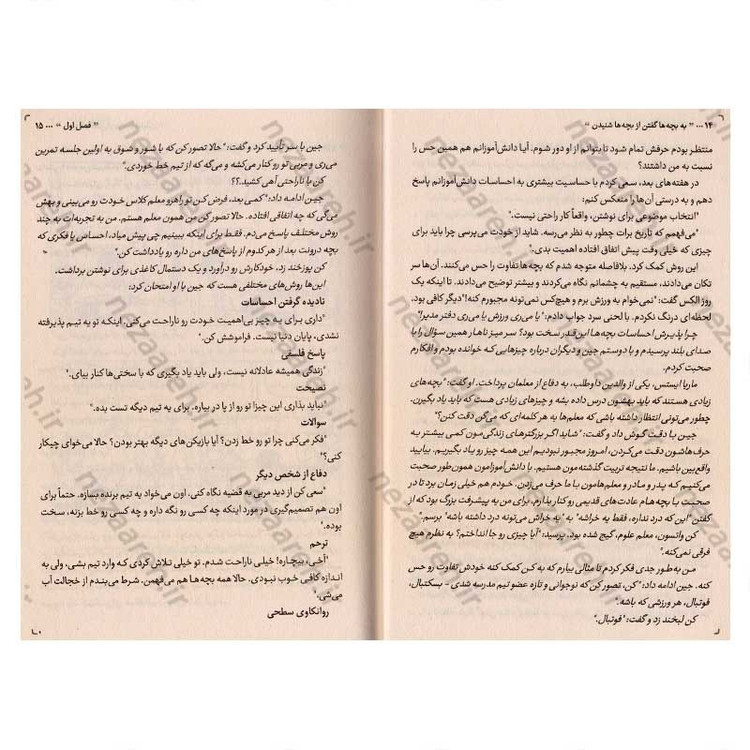 ۱۴ ... " به بچه‌ها گفتن از بچه‌ها شنیدن "
منتظر بودم حرفش تمام شود تا بتوانم از او دور شوم. آیا دانش‌آموزانم هم همین حس را
نسبت به من داشتند؟
در هفته‌های بعد، سعی کردم با حساسیت بیشتری به احساسات دانش‌آموزانم پاسخ
دهم و به درستی آن‌ها را منعکس کنم:
"انتخاب موضوعی برای نوشتن، واقعاً کار راحتی نیست."
"می‌فهمم که تاریخ برات چطور به نظر می‌رسه. شاید از خودت می‌پرسی چرا باید برای
چیزی که خیلی وقت پیش اتفاق افتاده اهمیت بدی."
این روش کمک کرد. بلافاصله متوجه شدم که بچه‌ها تفاوت را حس می‌کنند. آن‌ها سر
تکان می‌دادند، مستقیم به چشمانم نگاه می‌کردند و بیشتر توضیح می‌دادند. تا اینکه یک
روز الکس گفت: "نمی‌خوام به ورزش برم و هیچ‌کس نمی‌تونه مجبورم کنه!" دیگر کافی بود.
لحظه‌ای درنگ نکردم. با لحنی سرد جواب دادم: "یا می‌ری ورزش یا می‌ری دفتر مدیر!"
چرا پذیرش احساسات بچه‌ها این‌قدر سخت بود؟ سر میز ناهار همین سؤال را با
صدای بلند پرسیدم و با دوستم جین و دیگران درباره چیزهایی که خوانده بودم و افکارم
صحبت کردم.
ماریا ایستس، یکی از والدین داوطلب، به دفاع از معلمان پرداخت. او گفت: "بچه‌های
زیادی هستند که باید بهشون درس داده بشه و چیزهای زیادی هست که باید یاد بگیرن.
چطور می‌تونی انتظار داشته باشی که معلم‌ها به هر کلمه‌ای که می‌گن دقت کنن؟"
جین با دقت گوش داد و گفت: "شاید اگر بزرگترهای زندگی‌مون کمی بیشتر به
حرف‌هاشون دقت می‌کردن، امروز مجبور نبودیم این همه چیز رو یاد بگیریم. بیایید
واقع‌بین باشیم. ما نتیجه تربیت گذشته‌مون هستیم. با دانش‌آموزامون همون‌طور صحبت
می‌کنیم که پدر و مادر و معلم‌هامون با ما حرف می‌زدن. خودم هم خیلی زمان برد تا در
صحبت با بچه‌هام عادت‌های قدیمی رو کنار بذارم. برای من یه پیشرفت بزرگ بود که از
گفتن "این که درد نداره، فقط یه خراشه" به "یه خراش می‌تونه درد داشته باشه" برسم."
کن واتسون، معلم علوم، گیج شده بود. پرسید: "آیا چیزی رو جا انداختم؟ به نظرم هیچ
فرقی نمی‌کنه."
من به‌طور جدی فکر کردم تا مثالی بیارم که به کن کمک کنه خودش تفاوت رو حس
کنه. جین ادامه داد: "کن، تصور کن که نوجوانی و تازه عضو تیم مدرسه شدی - بسکتبال،
فوتبال، هر ورزشی که باشه."
کن لبخند زد و گفت: "فوتبال."
" فصل اول " ... ۱۵
جین با سر تأیید کرد و گفت: "حالا تصور کن که با شور و شوق به اولین جلسه تمرین
می‌ری و مربی تو رو کنار می‌کشه و می‌گه که از تیم خط خوردی."
کن با ناراحتی آهی کشید.؟؟
جین ادامه داد: "کمی بعد، فرض کن تو راهرو معلم کلاس خودت رو می‌بینی و بهش
می‌گی که چه اتفاقی افتاده. حالا تصور کن من همون معلم هستم. من به تجربه‌ات به چند
روش مختلف پاسخ می‌دم. فقط برای اینکه ببینیم چی پیش میاد، احساس یا فکری که
بچه درونت بعد از هر کدوم از پاسخ‌های من داره رو یادداشت کن."
کن پوزخند زد، خودکارش رو درآورد و یک دستمال کاغذی برای نوشتن برداشت.
این‌ها روش‌های مختلفی هست که جین با او امتحان کرد:
نادیده گرفتن احساسات
"داری برای یه چیز بی‌اهمیت خودت رو ناراحت می‌کنی. اینکه تو یه تیم پذیرفته
نشدی، پایان دنیا نیست. فراموشش کن."
پاسخ فلسفی
"زندگی همیشه عادلانه نیست، ولی باید یاد بگیری که با سختی‌ها کنار بیای."
نصیحت
"نباید بذاری این چیزا تو رو از پا در بیاره. برای یه تیم دیگه تست بده."
سوالات
"فکر می‌کنی چرا تو رو خط زدن؟ آیا بازیکن‌های دیگه بهتر بودن؟ حالا می‌خوای چیکار
کنی؟"
دفاع از شخص دیگر
"سعی کن از دید مربی به قضیه نگاه کنی. اون می‌خواد یه تیم برنده بسازه. حتماً برای
اون هم تصمیم‌گیری در مورد اینکه چه کسی رو نگه داره و چه کسی رو خط بزنه، سخت
بوده."
ترحم
"آخی، بیچاره! خیلی ناراحت شدم. تو خیلی تلاش کردی که وارد تیم بشی، ولی به
اندازه کافی خوب نبودی. حالا همه بچه‌ها هم می‌فهمن. شرط می‌بندم از خجالت آب
می‌شی."
روانکاوی سطحی
nezaareh.ir